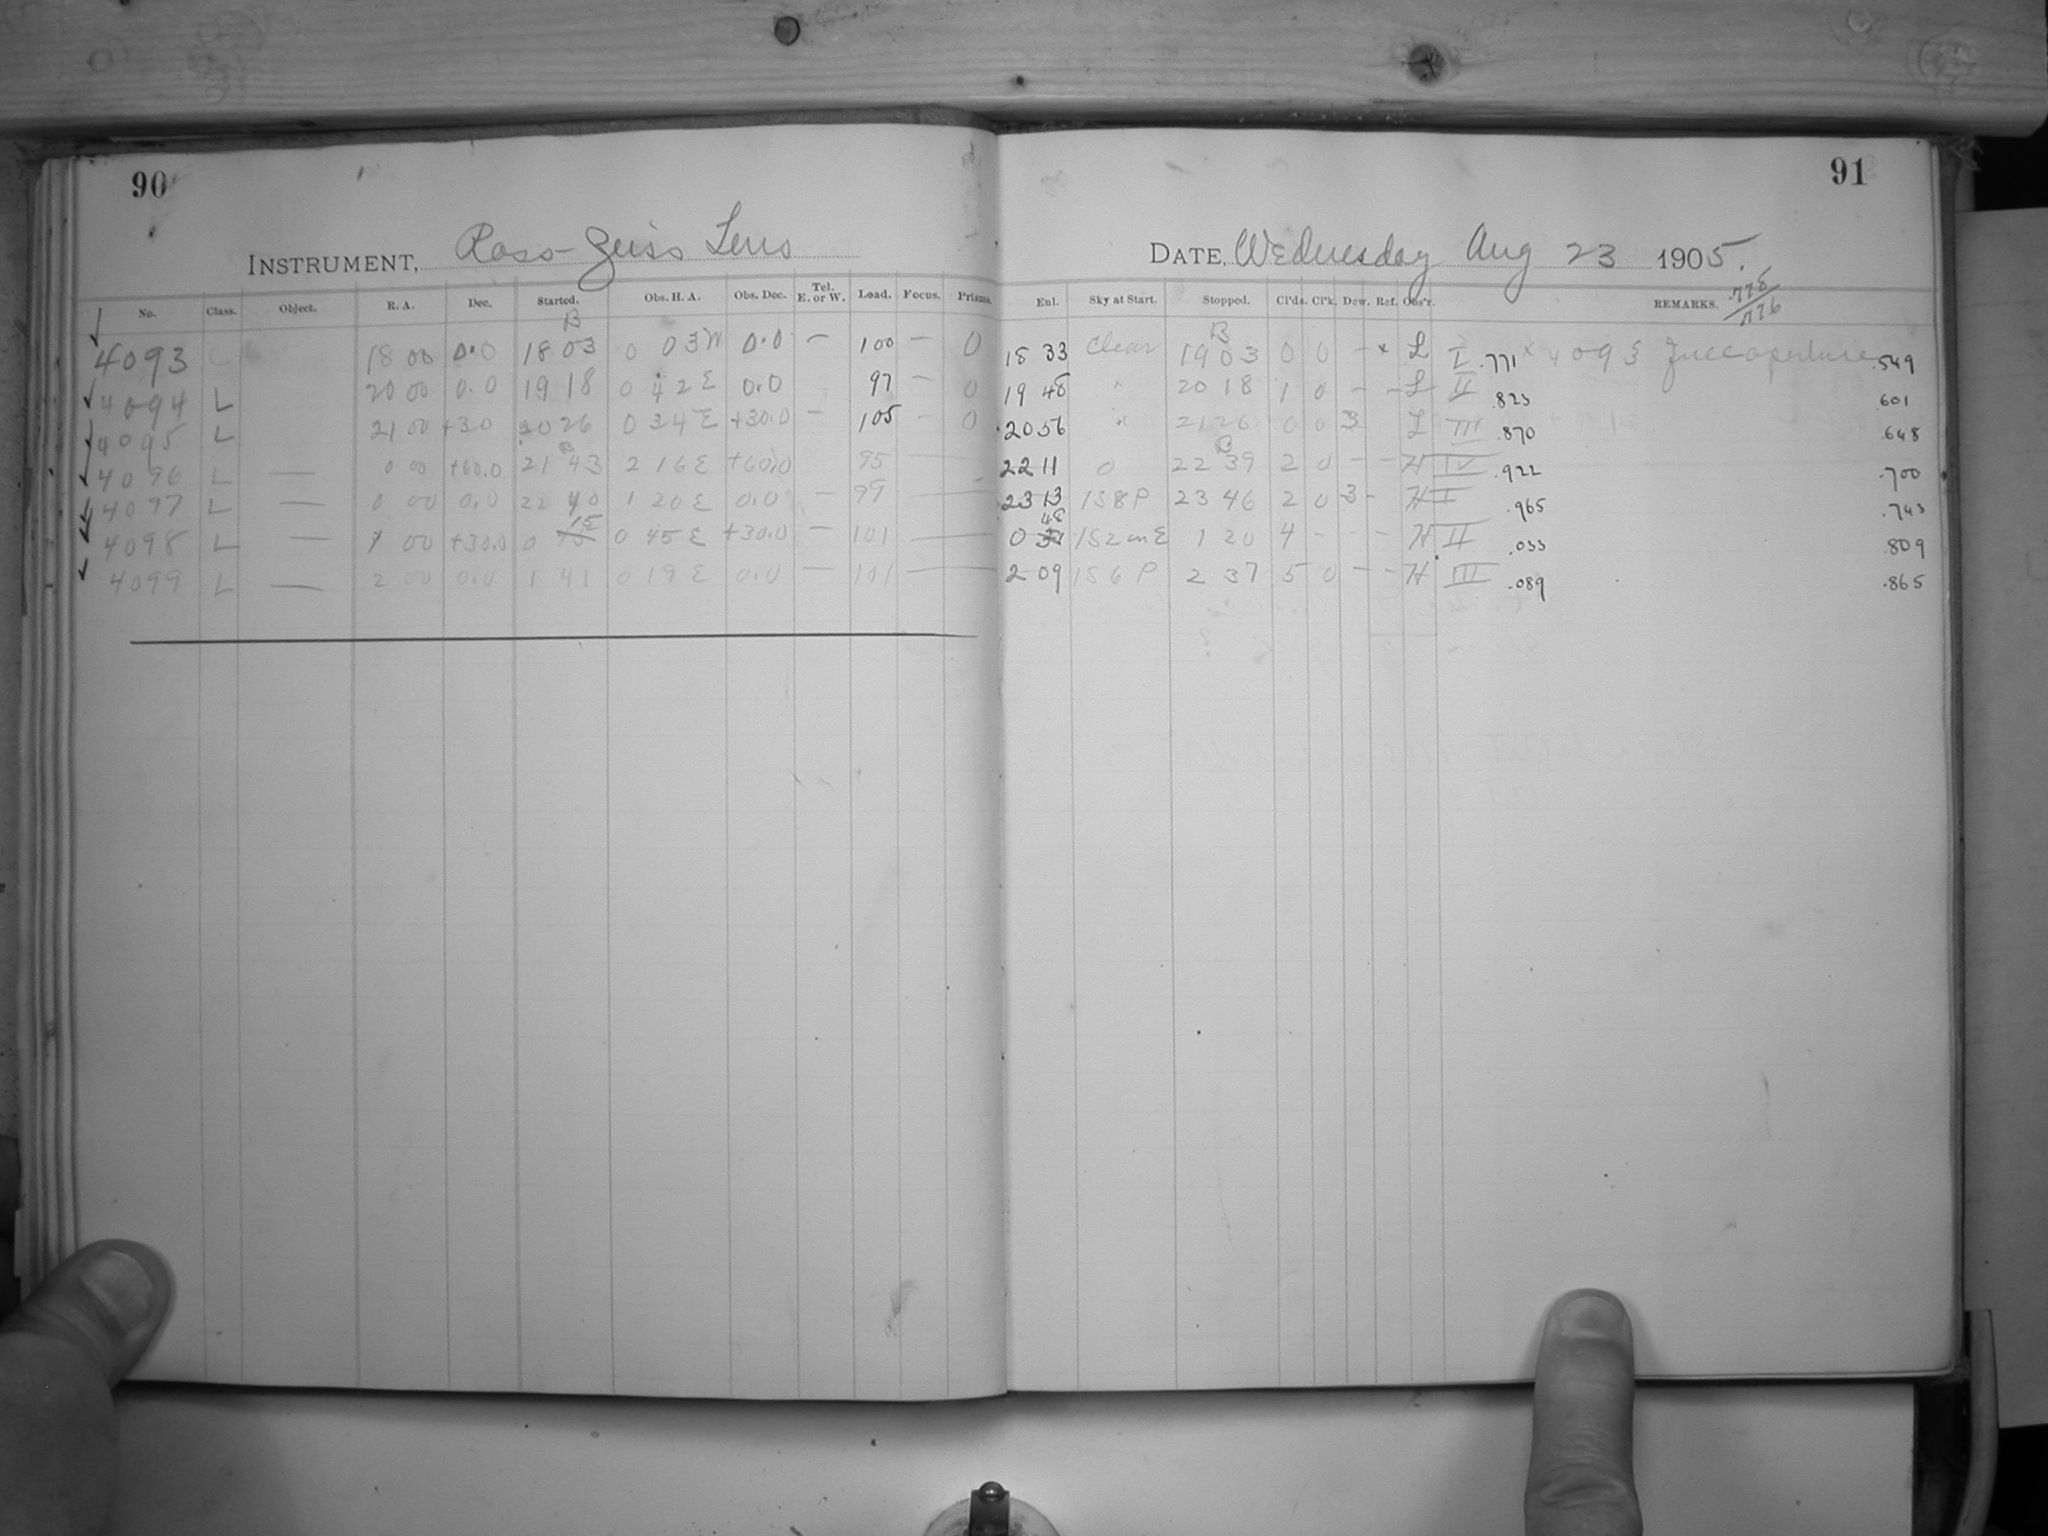 90
91
INSTRUMENT, Ross-Zeiss Lens
DATE, Wednesday Aug 23 1905.
No. Class. Object. R. A. Dec. Started. Obs. H. A. Obs. Dec. Tel. E. or W. Load. Focus. Prisms. Enl. Sky at Start. Stopped. Cl'ds. Cl'k. Dew. Ref. Obs'r. REMARKS. .778/776
B B
4093 18 00 0.0 18 03 0 03W 0.0 — 100 — 0 18 33 Clear 19 03 0 0 - * L I .771 * 4093 Full aperture .549
4094 L 20 00 0.0 19 18 0 42 E 0.0 97 — 0 19 48 " 20 18 1 0 - - L II .823 .601
4095 L 21 00 +30 2026 0 34 E +30.0 — 105 — 0 2056 " 2126 0 0 3 L III .870 .648
B B
4096 L — 0 00 +60.0 21 43 2 16 E +60.0 95 — 22 11 0 22 39 2 0 - - H IV .922 .700
4097 L — 0 00 0.0 22 40 1 20 E 0.0 — 99 — 23 13 1S8P 23 46 2 0 3 - H I .965 .743
15 48
4098 L — 1 00 +30.0 0 0 45 E +30.0 — 101 — 0 1S2mE 1 20 4 - - - H II .033 .809
4099 L — 2 00 0.0 1 41 0 19 E 0.0 — 101 — 2 09 1S6P 2 37 5 0 - - H III .089 .865